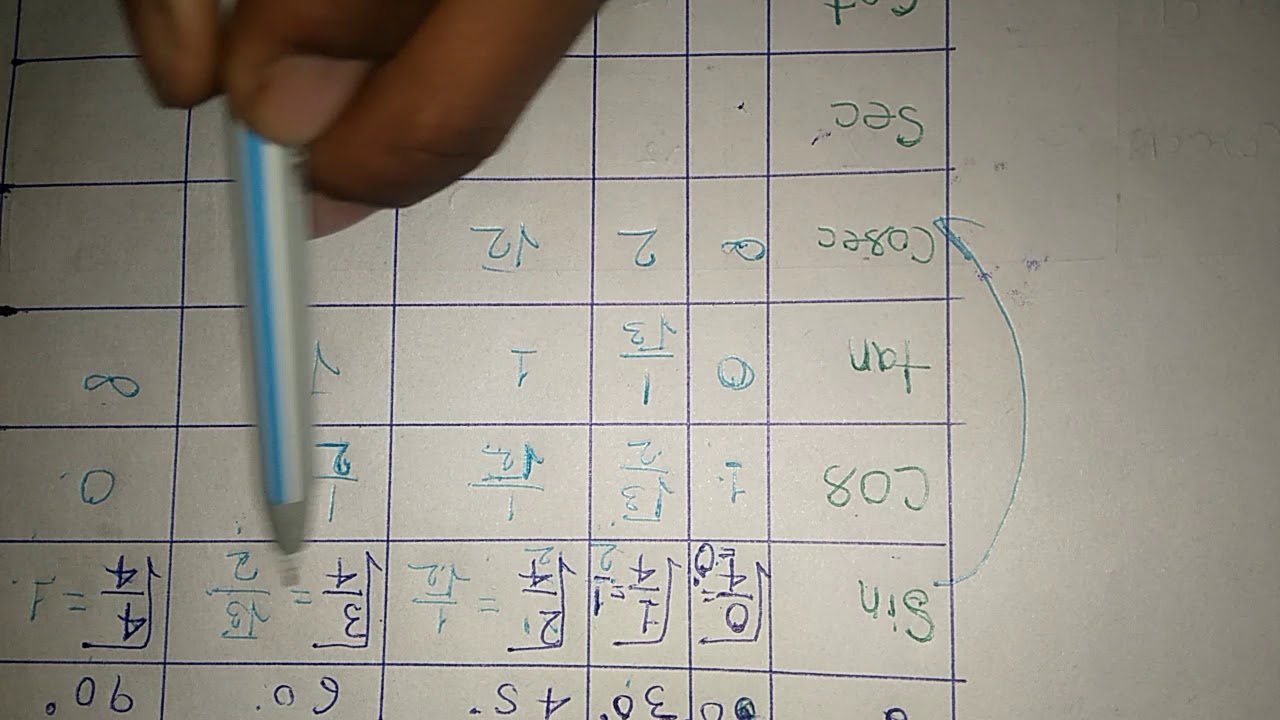 0° 30° 45° 60° 90°
Sin √0/4 = 0 √1/4 = 1/2 √2/4 = 1/√2 √3/4 = √3/2 √4/4 = 1
Cos 1 √3/2 1/√2 1/2 0
tan 0 1/√3 1 ∞
Cosec 2 √2
Sec
Cot